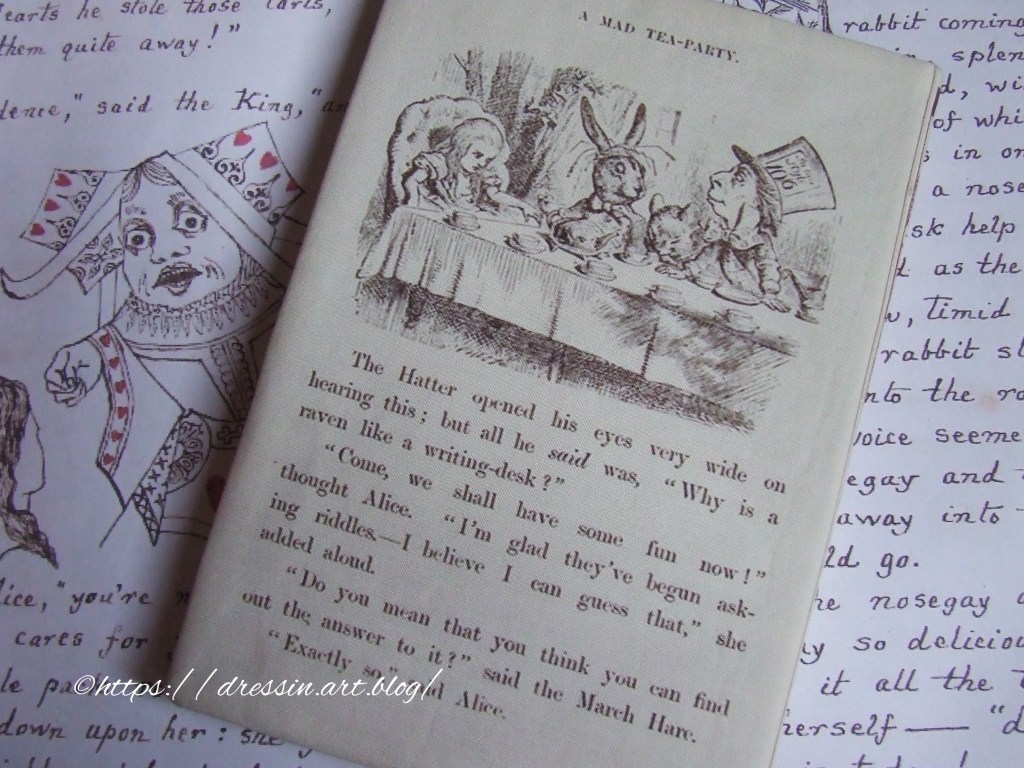 earts he stole those tarts,
them quite away!"
dence," said the King, "an
lice, "you're n
cares for
le pa
down upon her: she
A MAD TEA-PARTY.
The Hatter opened his eyes very wide on
hearing this; but all he said was, "Why is a
raven like a writing-desk?"
"Come, we shall have some fun now!"
thought Alice. "I'm glad they've begun ask-
ing riddles.—I believe I can guess that," she
added aloud.
"Do you mean that you think you can find
out the answer to it?" said the March Hare.
"Exactly so," said Alice.
©https://dressin.art.blog/
rabbit coming
splen
d, wi
of whi
s in on
a nose
ask help
d as the
, timid
rabbit st
nto the ro
voice seeme
egay and
away into
ld go.
he nosegay
y so delicio
it all the
herself — "d